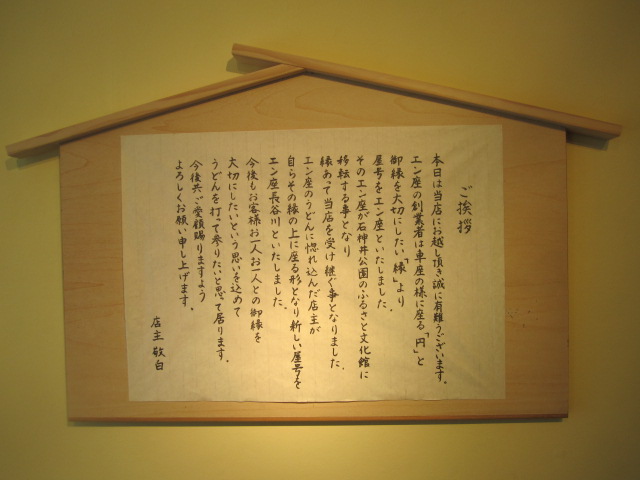 ご挨拶
本日は当店にお越し頂き誠に有難うございます。
エン座の創業者は車座の様に座る「円」と
御縁を大切にしたい「縁」より
屋号をエン座といたしました。
そのエン座が石神井公園のふるさと文化館に
移転する事となり
縁あって当店を受け継ぐ事となりました。
エン座のうどんに惚れ込んだ店主が
自らその縁の上に座る形となり新しい屋号を
エン座長谷川といたしました。
今後もお客様お一人お一人との御縁を
大切にしたいという思いを込めて
うどんを打って参りたいと思って居ります。
今後共ご愛顧賜りますよう
よろしくお願い申し上げます。
店主 敬白